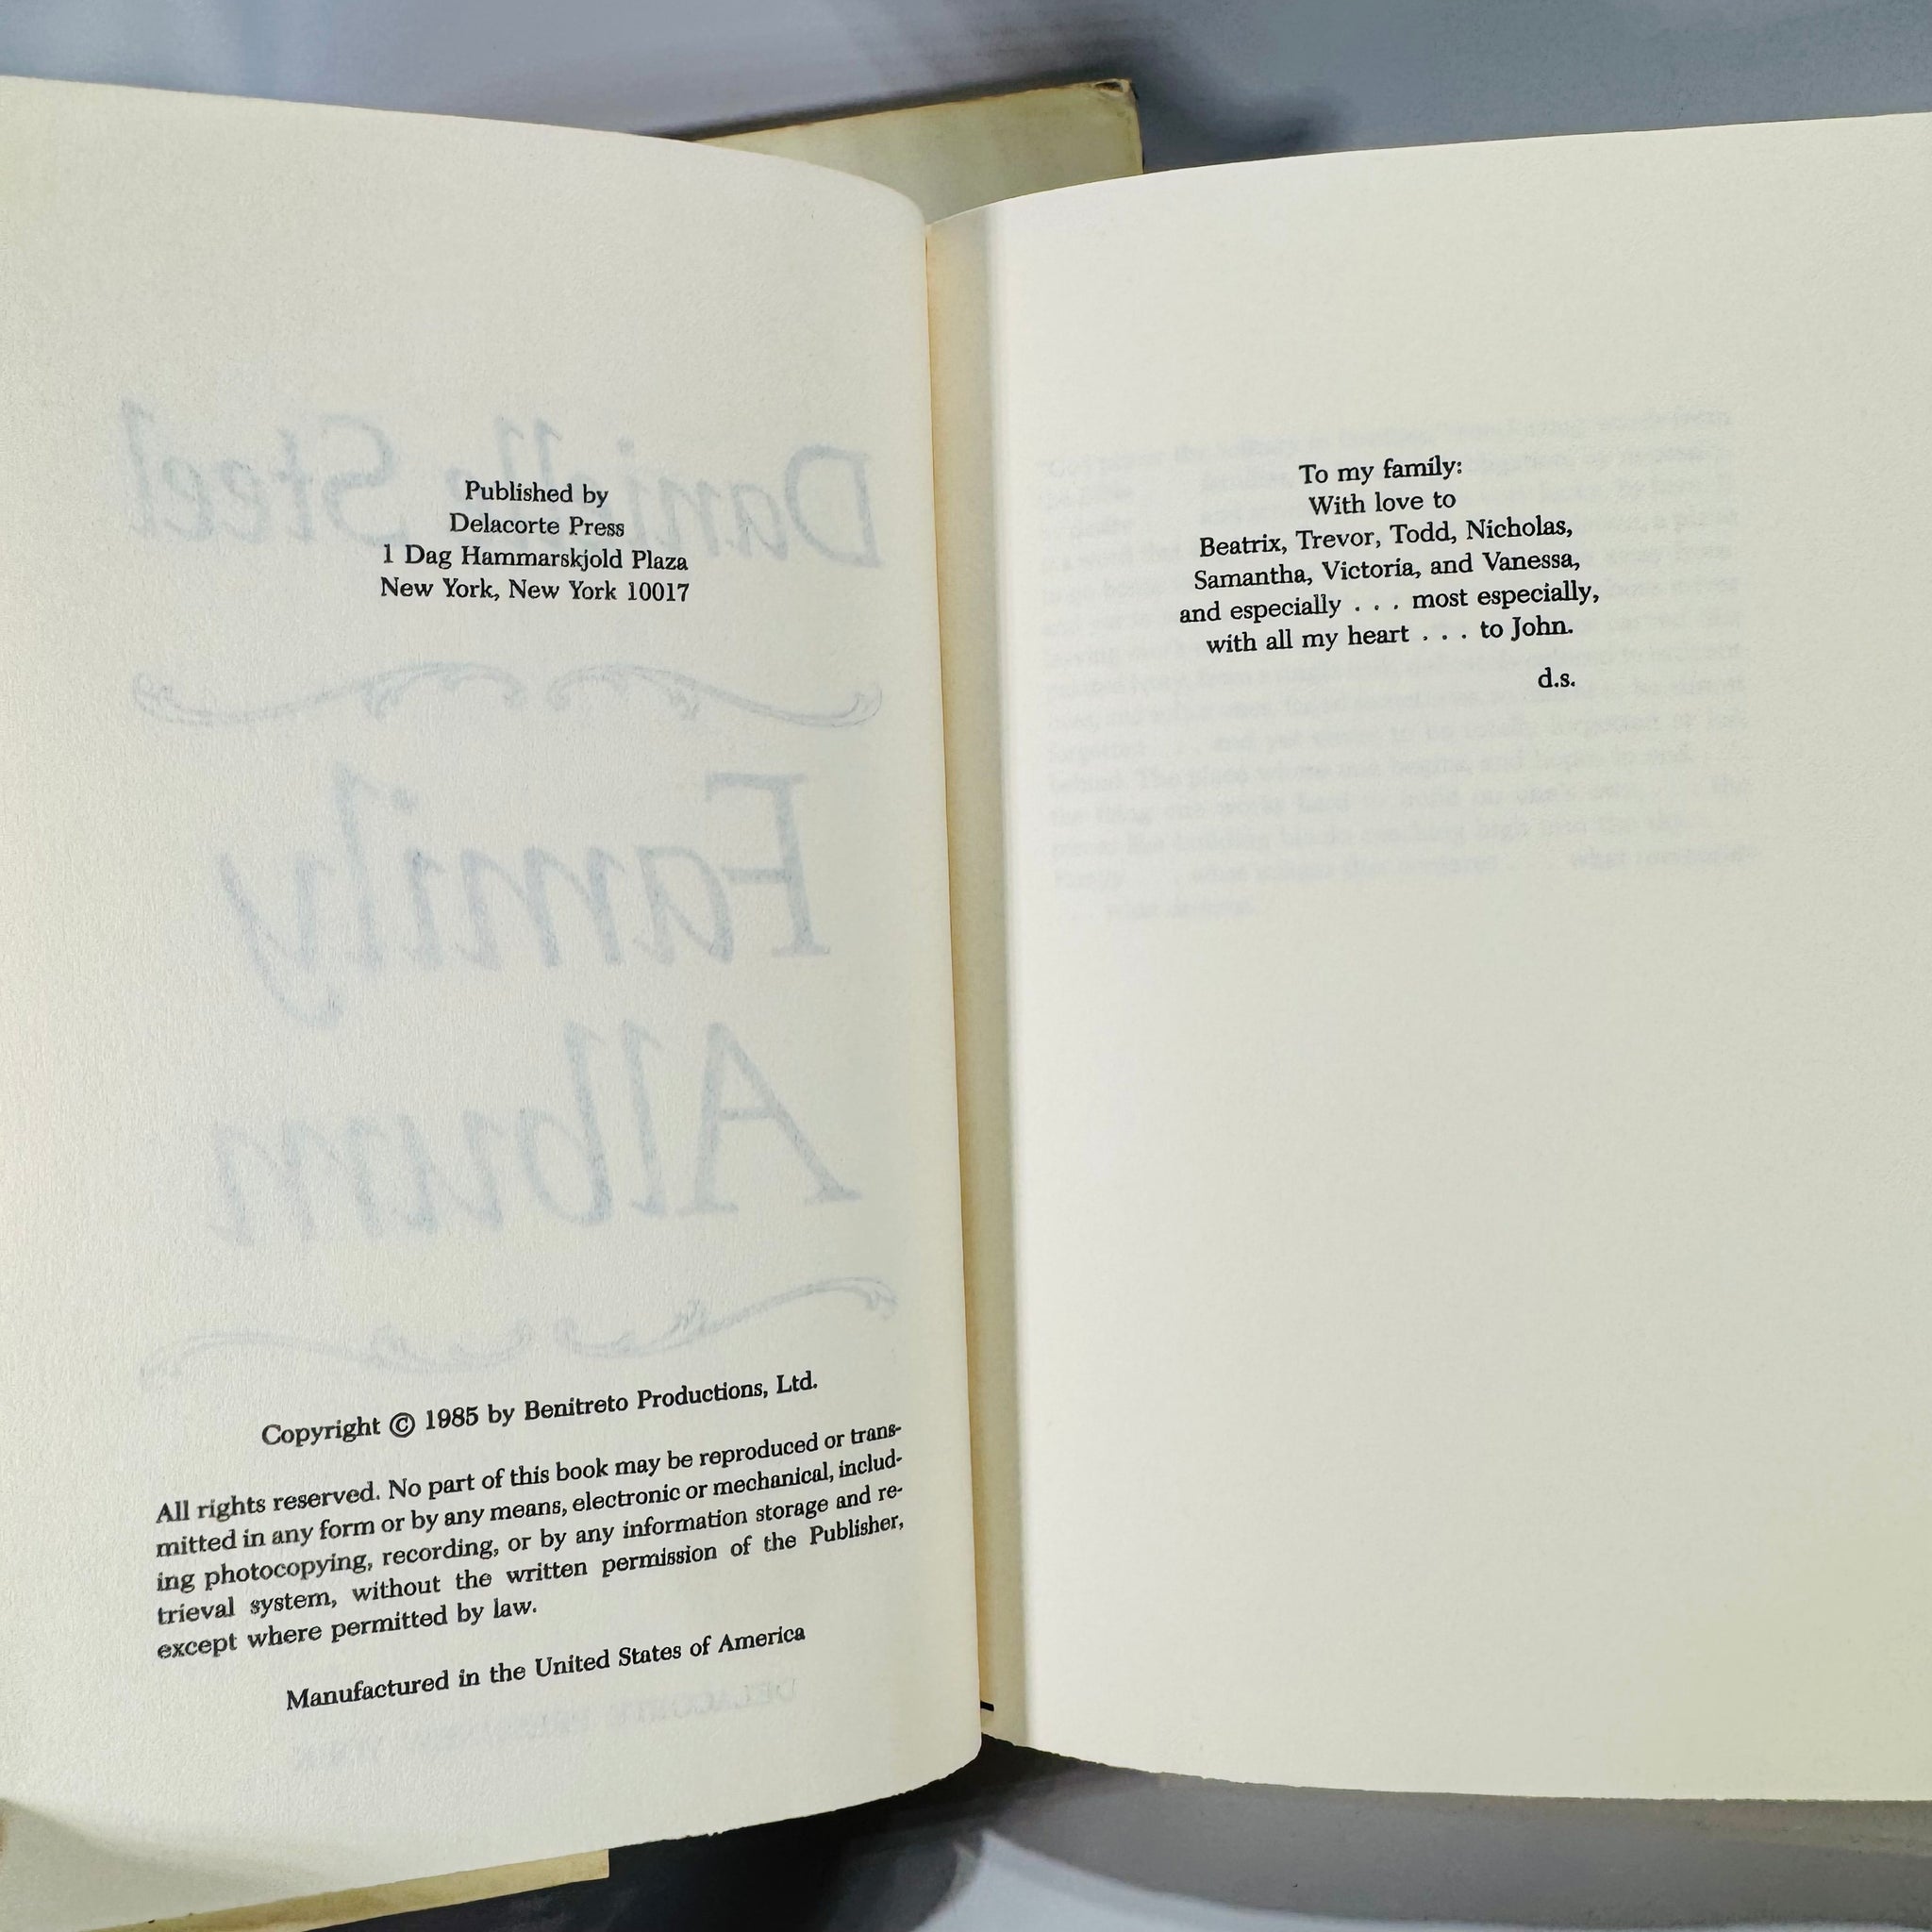 Published by
Delacorte Press
1 Dag Hammarskjold Plaza
New York, New York 10017
Danielle Steel
Family
Album
Copyright © 1985 by Benitreto Productions, Ltd.
All rights reserved. No part of this book may be reproduced or trans-
mitted in any form or by any means, electronic or mechanical, includ-
ing photocopying, recording, or by any information storage and re-
trieval system, without the written permission of the Publisher,
except where permitted by law.
Manufactured in the United States of America
To my family:
With love to
Beatrix, Trevor, Todd, Nicholas,
Samantha, Victoria, and Vanessa,
and especially . . . most especially,
with all my heart . . . to John.
d.s.